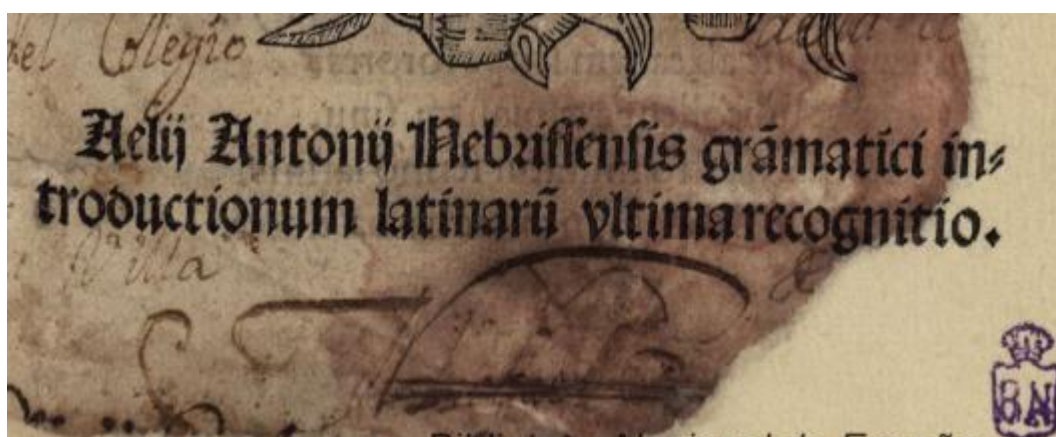 del Colegio
Aelij Antonij Nebrissensis grãmatici in⸗
troductionum latinarũ vltima recognitio.
villa
BN